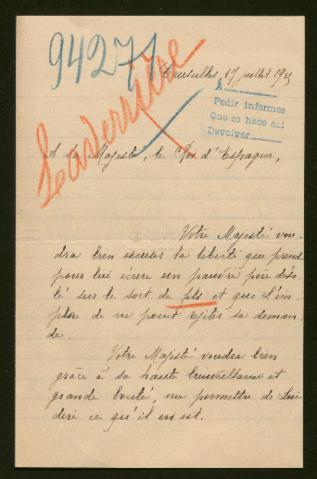 94271
Laverrière
Bruxelles, 17 juillet 19
A
Pedir informes
Que se hace asi
Devolver
A sa Majesté, le Roi d'Espagne,
Votre Majesté vou-
dra bien excuser la liberté que prend
pour lui écrire un pauvre père déso
lé sur le sort de fils et qui l'im
plore de ne point rejeter sa deman-
de.
Votre Majesté voudra bien
grâce à sa haute bienveillance et
grande bonté, me permettre de Lui
dire ce qu'il en est.